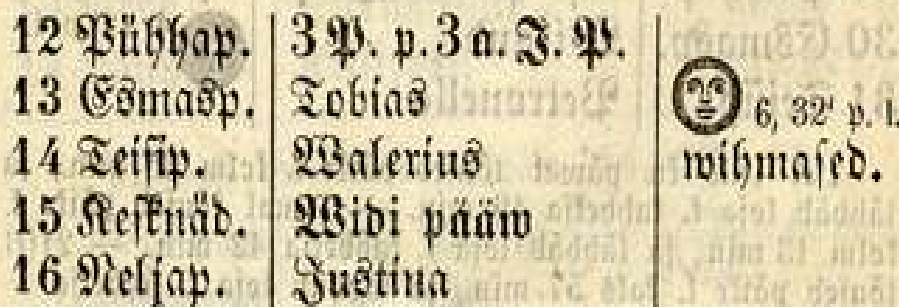 12 Pühhap. 3 P. p. 3 a. J. P.
13 Esmasp. Tobias 6, 32' p. l.
14 Teisip. Walerius wihmased.
15 Kesknäd. Widi pääw
16 Neljap. Justina